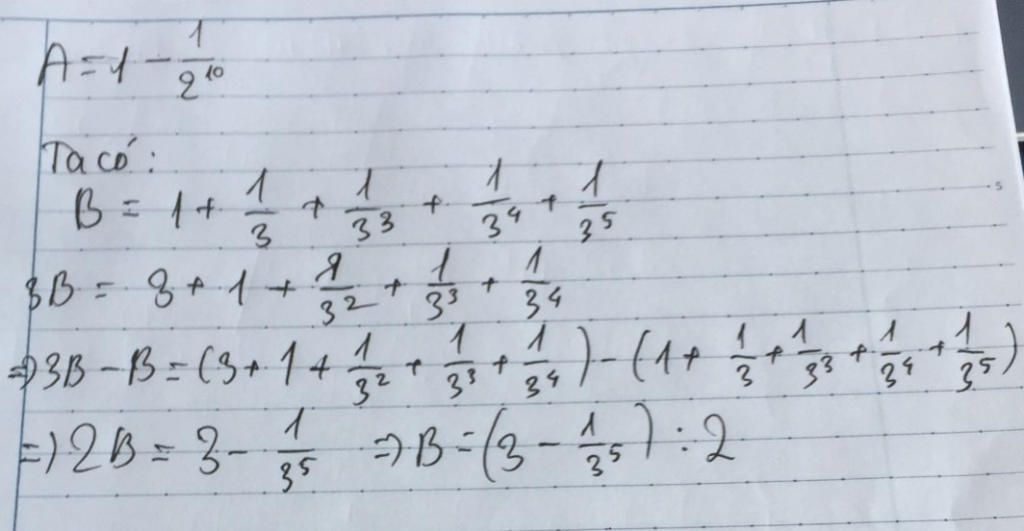 A = 1 - 1/2^10
Ta có:
B = 1 + 1/3 + 1/3^3 + 1/3^4 + 1/3^5
3B = 3 + 1 + 1/3^2 + 1/3^3 + 1/3^4
=> 3B - B = (3 + 1 + 1/3^2 + 1/3^3 + 1/3^4) - (1 + 1/3 + 1/3^3 + 1/3^4 + 1/3^5)
=> 2B = 3 - 1/3^5 => B = (3 - 1/3^5) : 2